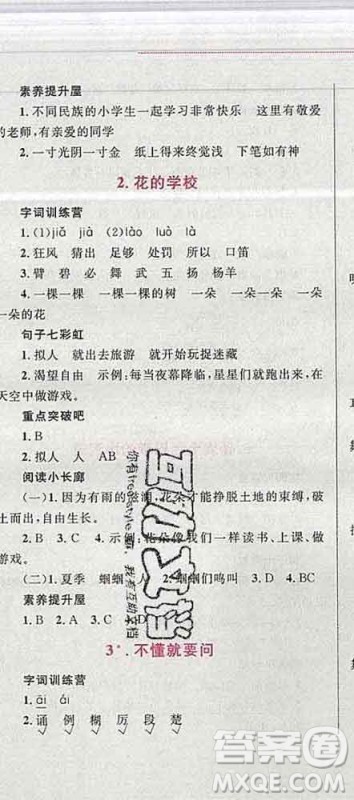 素养提升屋
1. 不同民族的小学生一起学习非常快乐 这里有敬爱
的老师，有亲爱的同学
2. 一寸光阴一寸金 纸上得来终觉浅 下笔如有神
2. 花的学校
字词训练营
1. (1)jiǎ jià (2)lào luò là
2. 狂风 猜出 足够 处罚 所以 口笛
3. 臂 碧 必 舞 武 五 扬 杨 羊
4. 一棵一棵 一棵一棵的树 一朵 一朵 一朵
一朵的花
句子七彩虹
1. 拟人 就出去旅游 就开始玩捉迷藏
2. 渴望自由 示例：每当夜幕降临，星星们就跑出来，在
天空中做游戏。
重点突破吧
1. B
2. 拟人 人 AB
阅读小长廊
(一)1. 因为有雨的滋润，花朵才能挣脱土地的束缚，破
土而出，自由生长。
2. B C A 4. 示例：花朵像我们一样读书、上课、做
游戏。
(二)1. 夏季 蝈蝈 人 2. 蝈蝈们鸣叫 3. C
素养提升屋
1. B 2. A 3. C 4. C D
3*. 不懂就要问
字词训练营
1. āi ái
2. 诵 例 糊 厉 段 楚
互动文档
你有freestyle吗，我有互动文档
答案圈
MXQE.COM